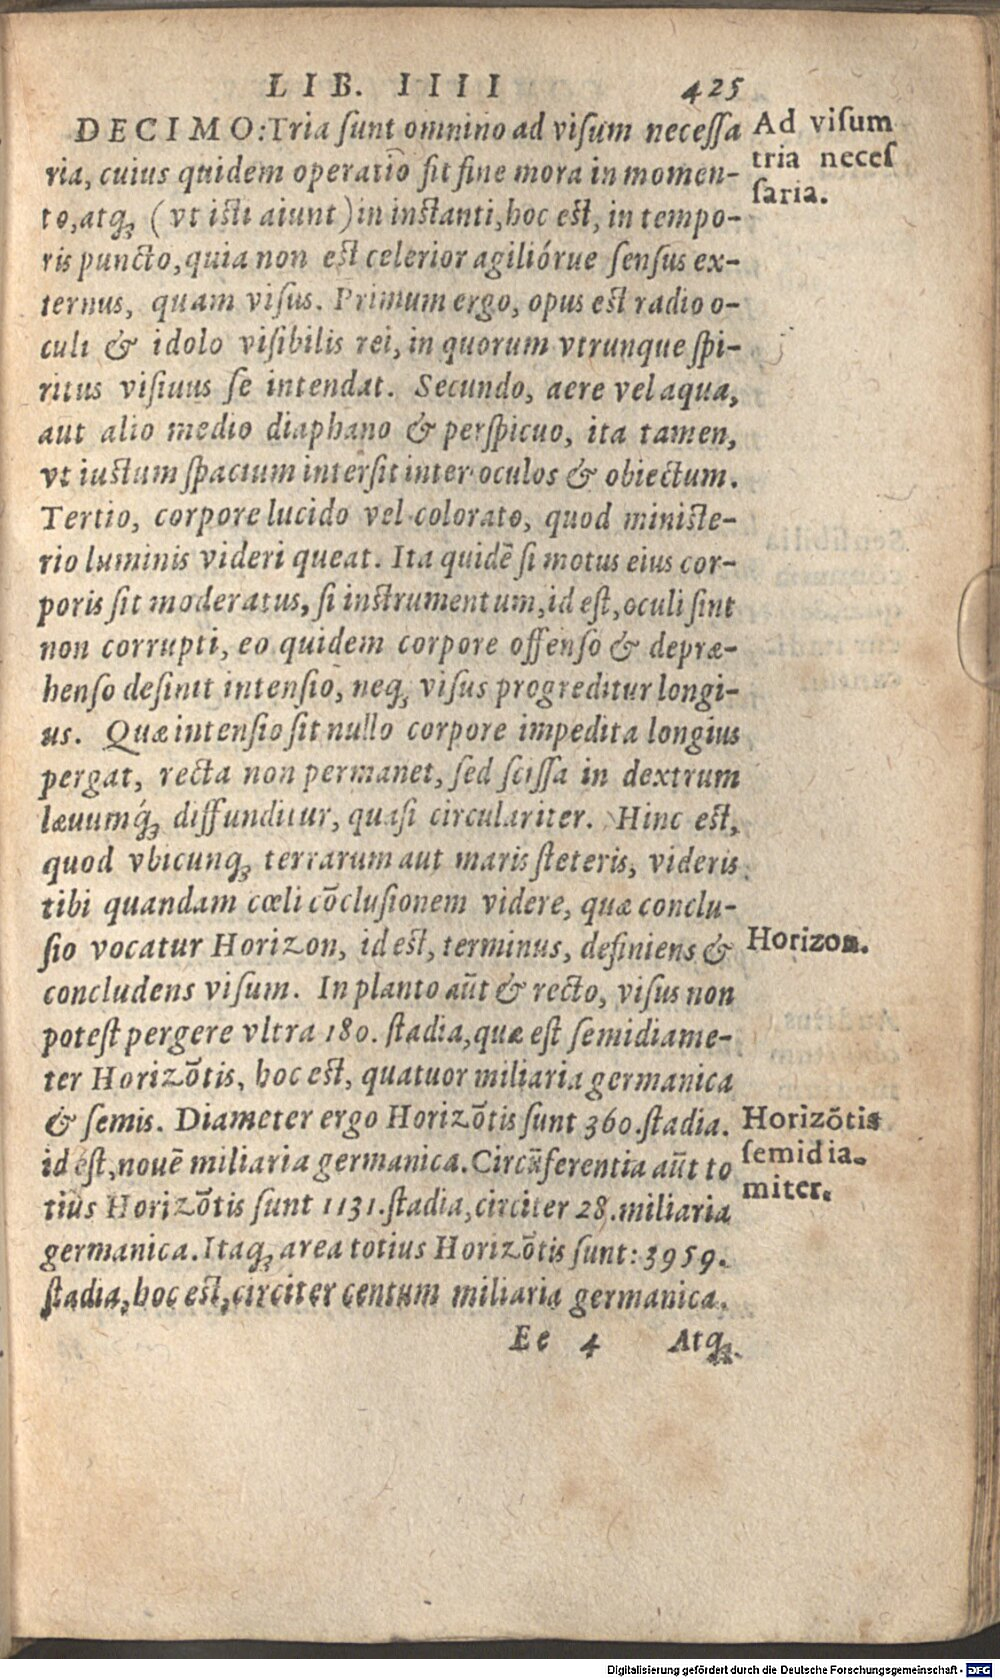 LIB. IIII 425
DECIMO: Tria ſunt omnino ad viſum neceſſa
ria, cuius quidem operatiō ſit ſine mora in momen-
to, atq; (vt iſti aiunt) in inſtanti, hoc eſt, in tempo-
ris puncto, quia non eſt celerior agiliórue ſenſus ex-
ternus, quam viſus. Primum ergo, opus eſt radio o-
culi & idolo viſibilis rei, in quorum vtrunque ſpi-
ritus viſiuus ſe intendat. Secundo, aere vel aqua,
aut alio medio diaphano & perſpicuo, ita tamen,
vt iuſtum ſpacium interſit inter oculos & obiectum.
Tertio, corpore lucido vel colorato, quod miniſte-
rio luminis videri queat. Ita quidē ſi motus eius cor-
poris ſit moderatus, ſi inſtrumentum, id eſt, oculi ſint
non corrupti, eo quidem corpore offenſo & depræ-
henſo deſinit intenſio, neq; viſus progreditur longi-
us. Quæ intenſio ſit nullo corpore impedita longius
pergat, recta non permanet, ſed ſciſſa in dextrum
læuumq́; diffunditur, quaſi circulariter. Hinc eſt,
quod vbicunq; terrarum aut maris ſteteris, videris
tibi quandam cœli cōcluſionem videre, quæ conclu-
ſio vocatur Horizon, id eſt, terminus, definiens &
concludens viſum. In planto aūt & recto, viſus non
poteſt pergere vltra 180. ſtadia, quæ eſt ſemidiame-
ter Horizōtis, hoc eſt, quatuor miliaria germanica
& ſemis. Diameter ergo Horizōtis ſunt 360. ſtadia.
id eſt, nouē miliaria germanica. Circūferentia aūt to
tius Horizōtis ſunt 1131. ſtadia, circiter 28. miliaria
germanica. Itaq; area totius Horizōtis ſunt: 3959.
ſtadia, hoc eſt, circiter centum miliaria germanica.
Ee 4 Atq;
Ad viſum
tria neceſ
ſaria.
Horizon.
Horizōtis
ſemidia-
miter.
Digitalisierung gefördert durch die Deutsche Forschungsgemeinschaft - DFG